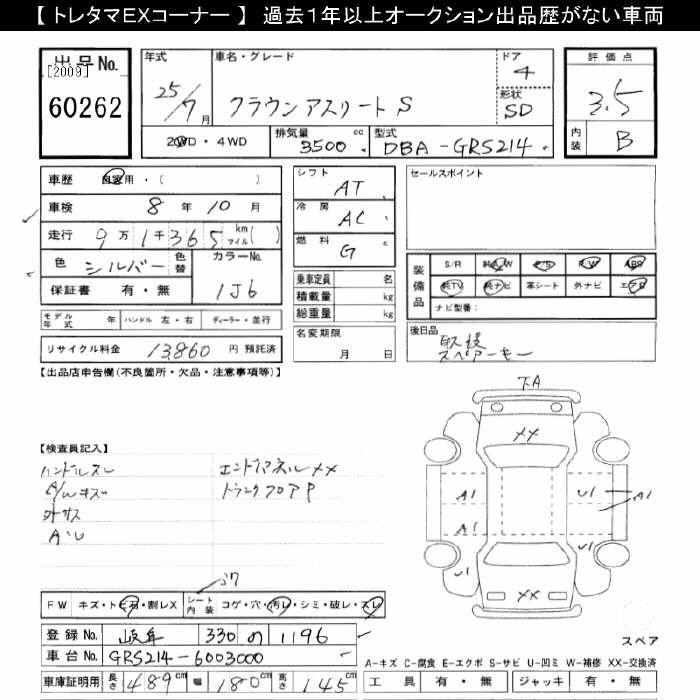 【 トレタマＥＸコーナー 】 過去１年以上オークション出品歴がない車両
出品No.
[2009]
60262
年式 25/7月
車名・グレード クラウンアスリートS
ドア 4
形状 SD
2WD・4WD
排気量 3500 cc
型式 DBA-GRS214
評価点 3.5
内装 B
車歴 自家用・( )
車検 8年 10月
走行 9万1千365 km マイル( )
色 シルバー 色替
カラーNo. 1J6
保証書 有・無
モデル年式 年 ハンドル 左・右 ディーラー・並行
リサイクル料金 13,860 円 預託済
シフト AT
冷房 AC
燃料 G c
乗車定員 名
積載量 kg
総重量 kg
名変期限 月 日
セールスポイント
装備品
S/R 純AW P/S P/W ABS
純TV 純ナビ 革シート 外ナビ エアB
ナビ型番:
後日品 取説
スペアーキー
【出品店申告欄(不良箇所・欠品・注意事項等)】
【検査員記入】
ハンドルスレ エンドパネルXX
A/Wキズ トランクフロアP
TA
XX
A1 U1 A1
A1
U1 U1
XX
スペア
FW キズ・トビ石・割レX
シート内装 コゲ・穴・汚レ・シミ・破レ・スレ
登録No. 岐阜 330 の 1196
車台No. GRS214-6003000
車庫証明用 長さ 489cm 幅 180cm 高さ 145cm
A-キズ C-腐食 E-エクボ S-サビ U-凹ミ W-補修 XX-交換済
工具 有・無 ジャッキ 有・無